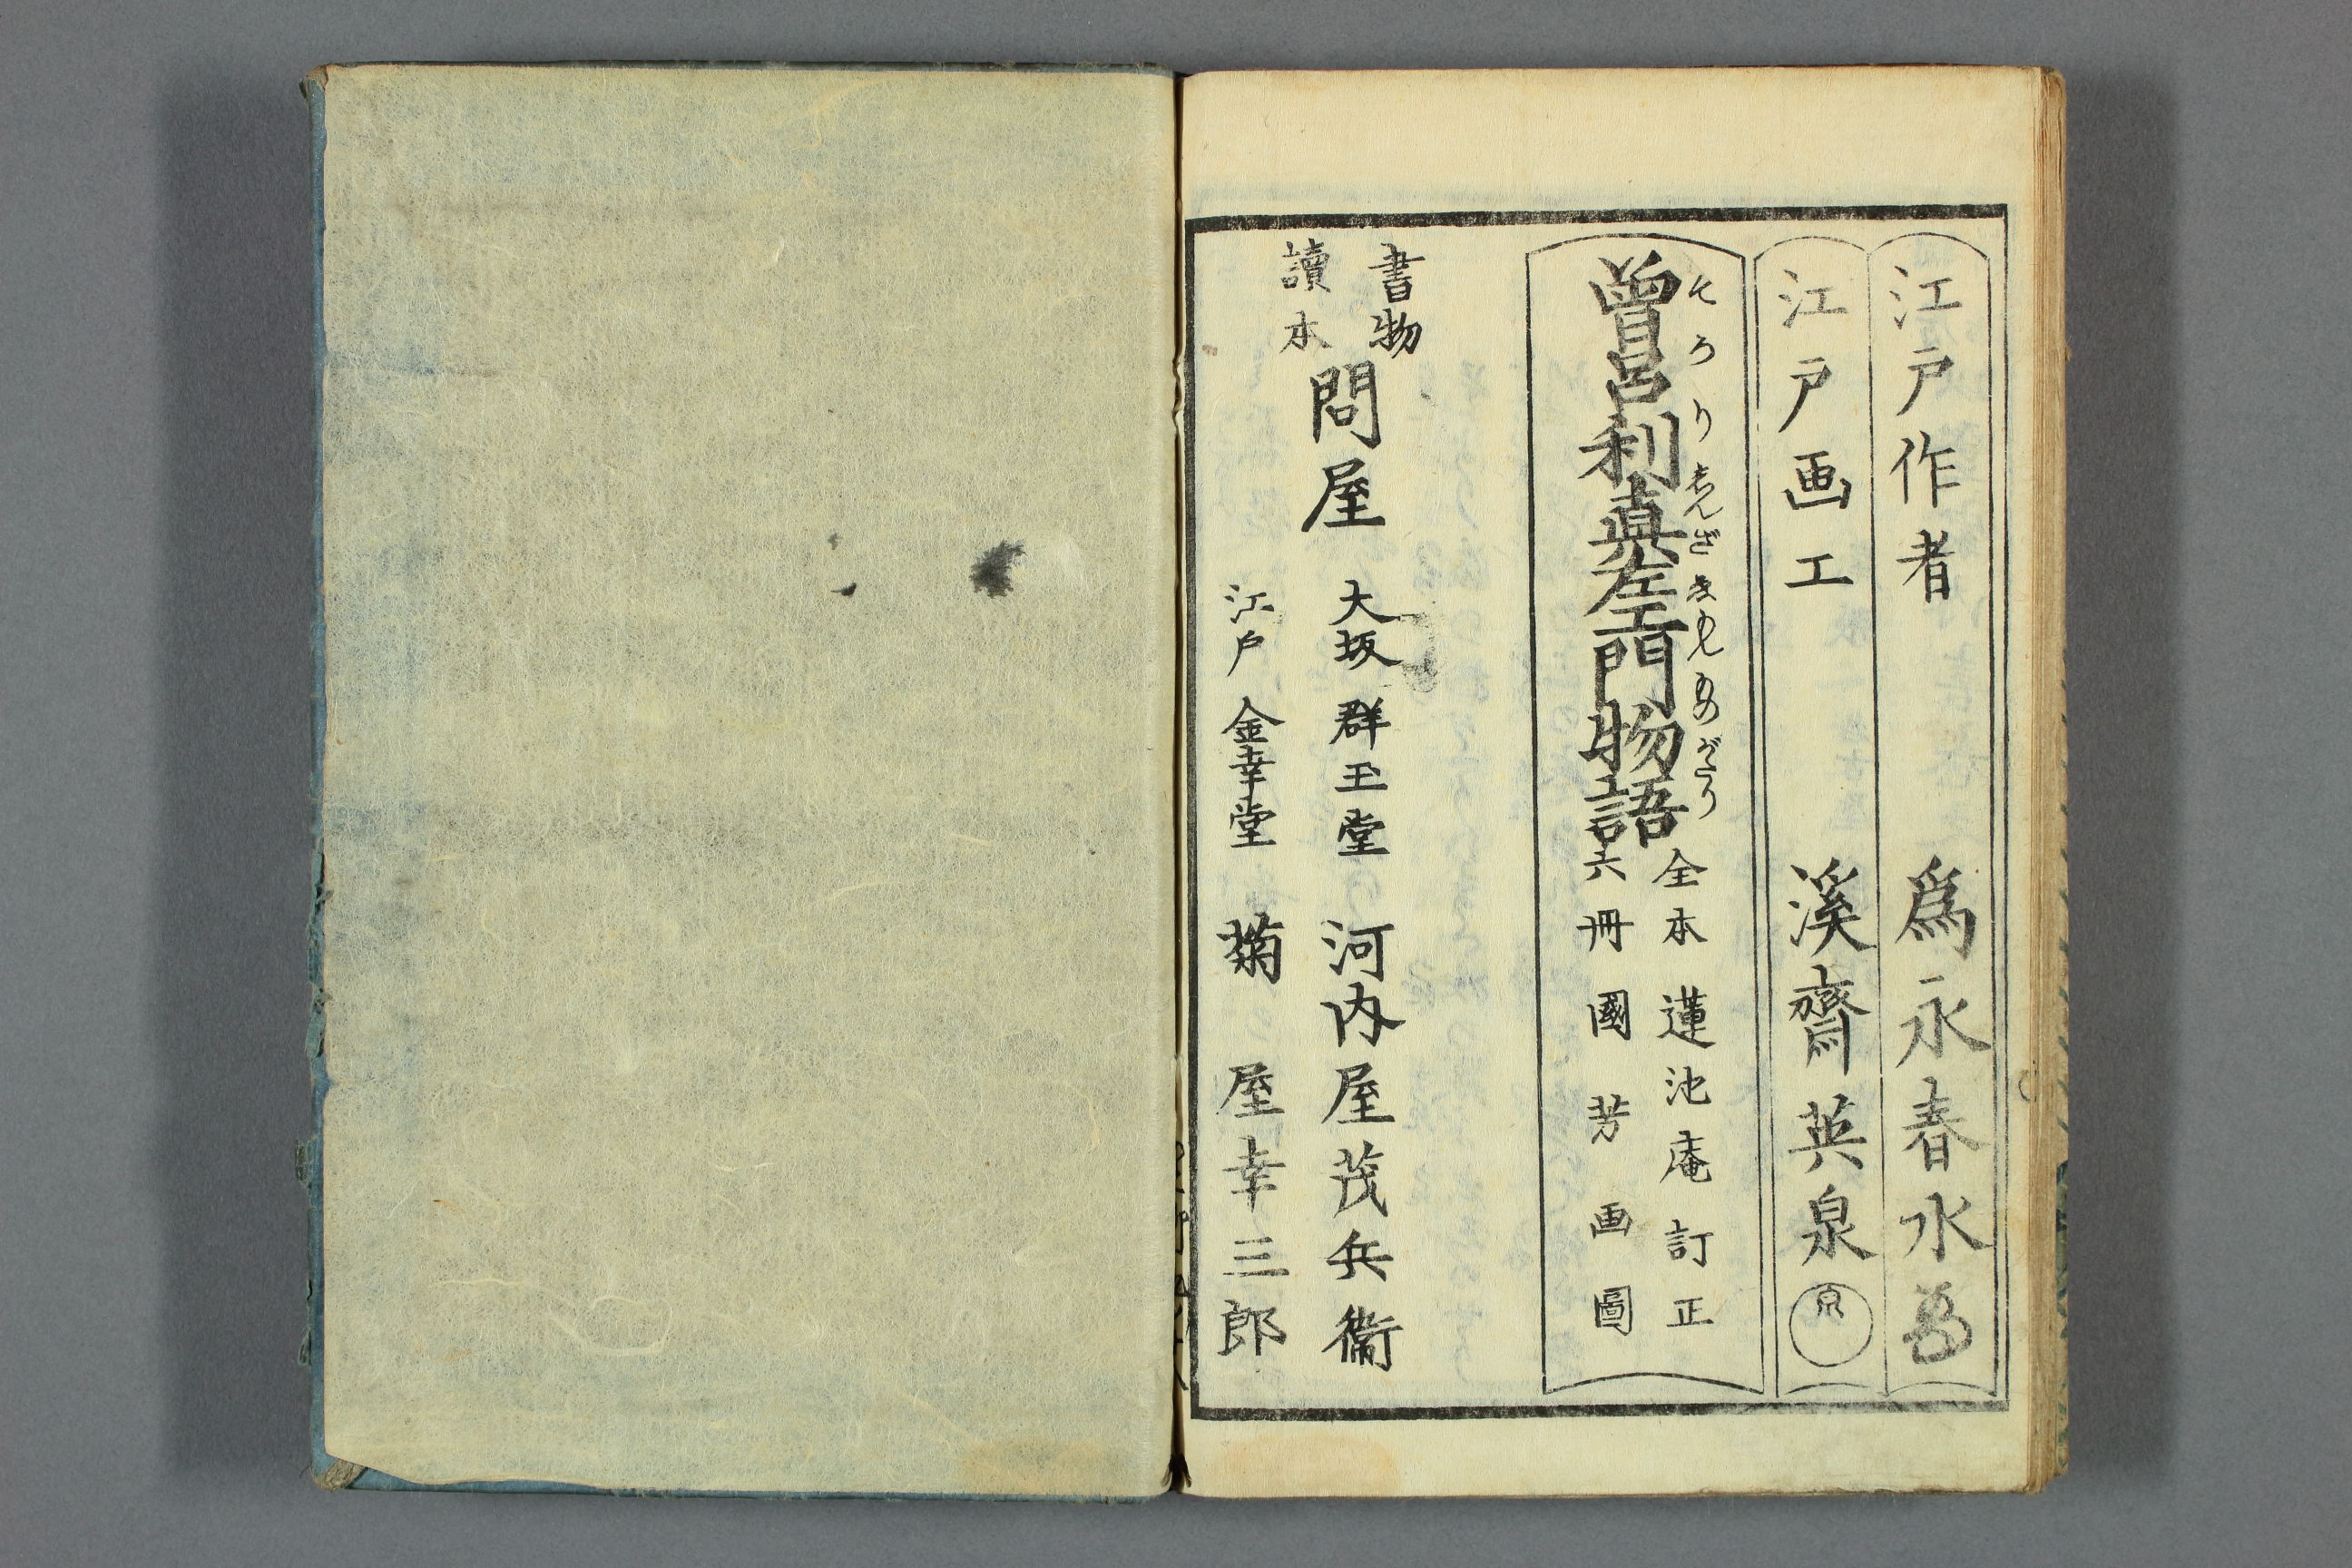 江戸作者 爲永春水
江戸画工 溪齋英泉 泉
曽呂利眞左衛門物語
そろりしんざゑもんものがたり
全本 蓮池庵訂正
六冊 國芳画圖
書物
讀本
問屋
大坂 群玉堂 河内屋茂兵衞
江戸 金幸堂 菊屋幸三郎